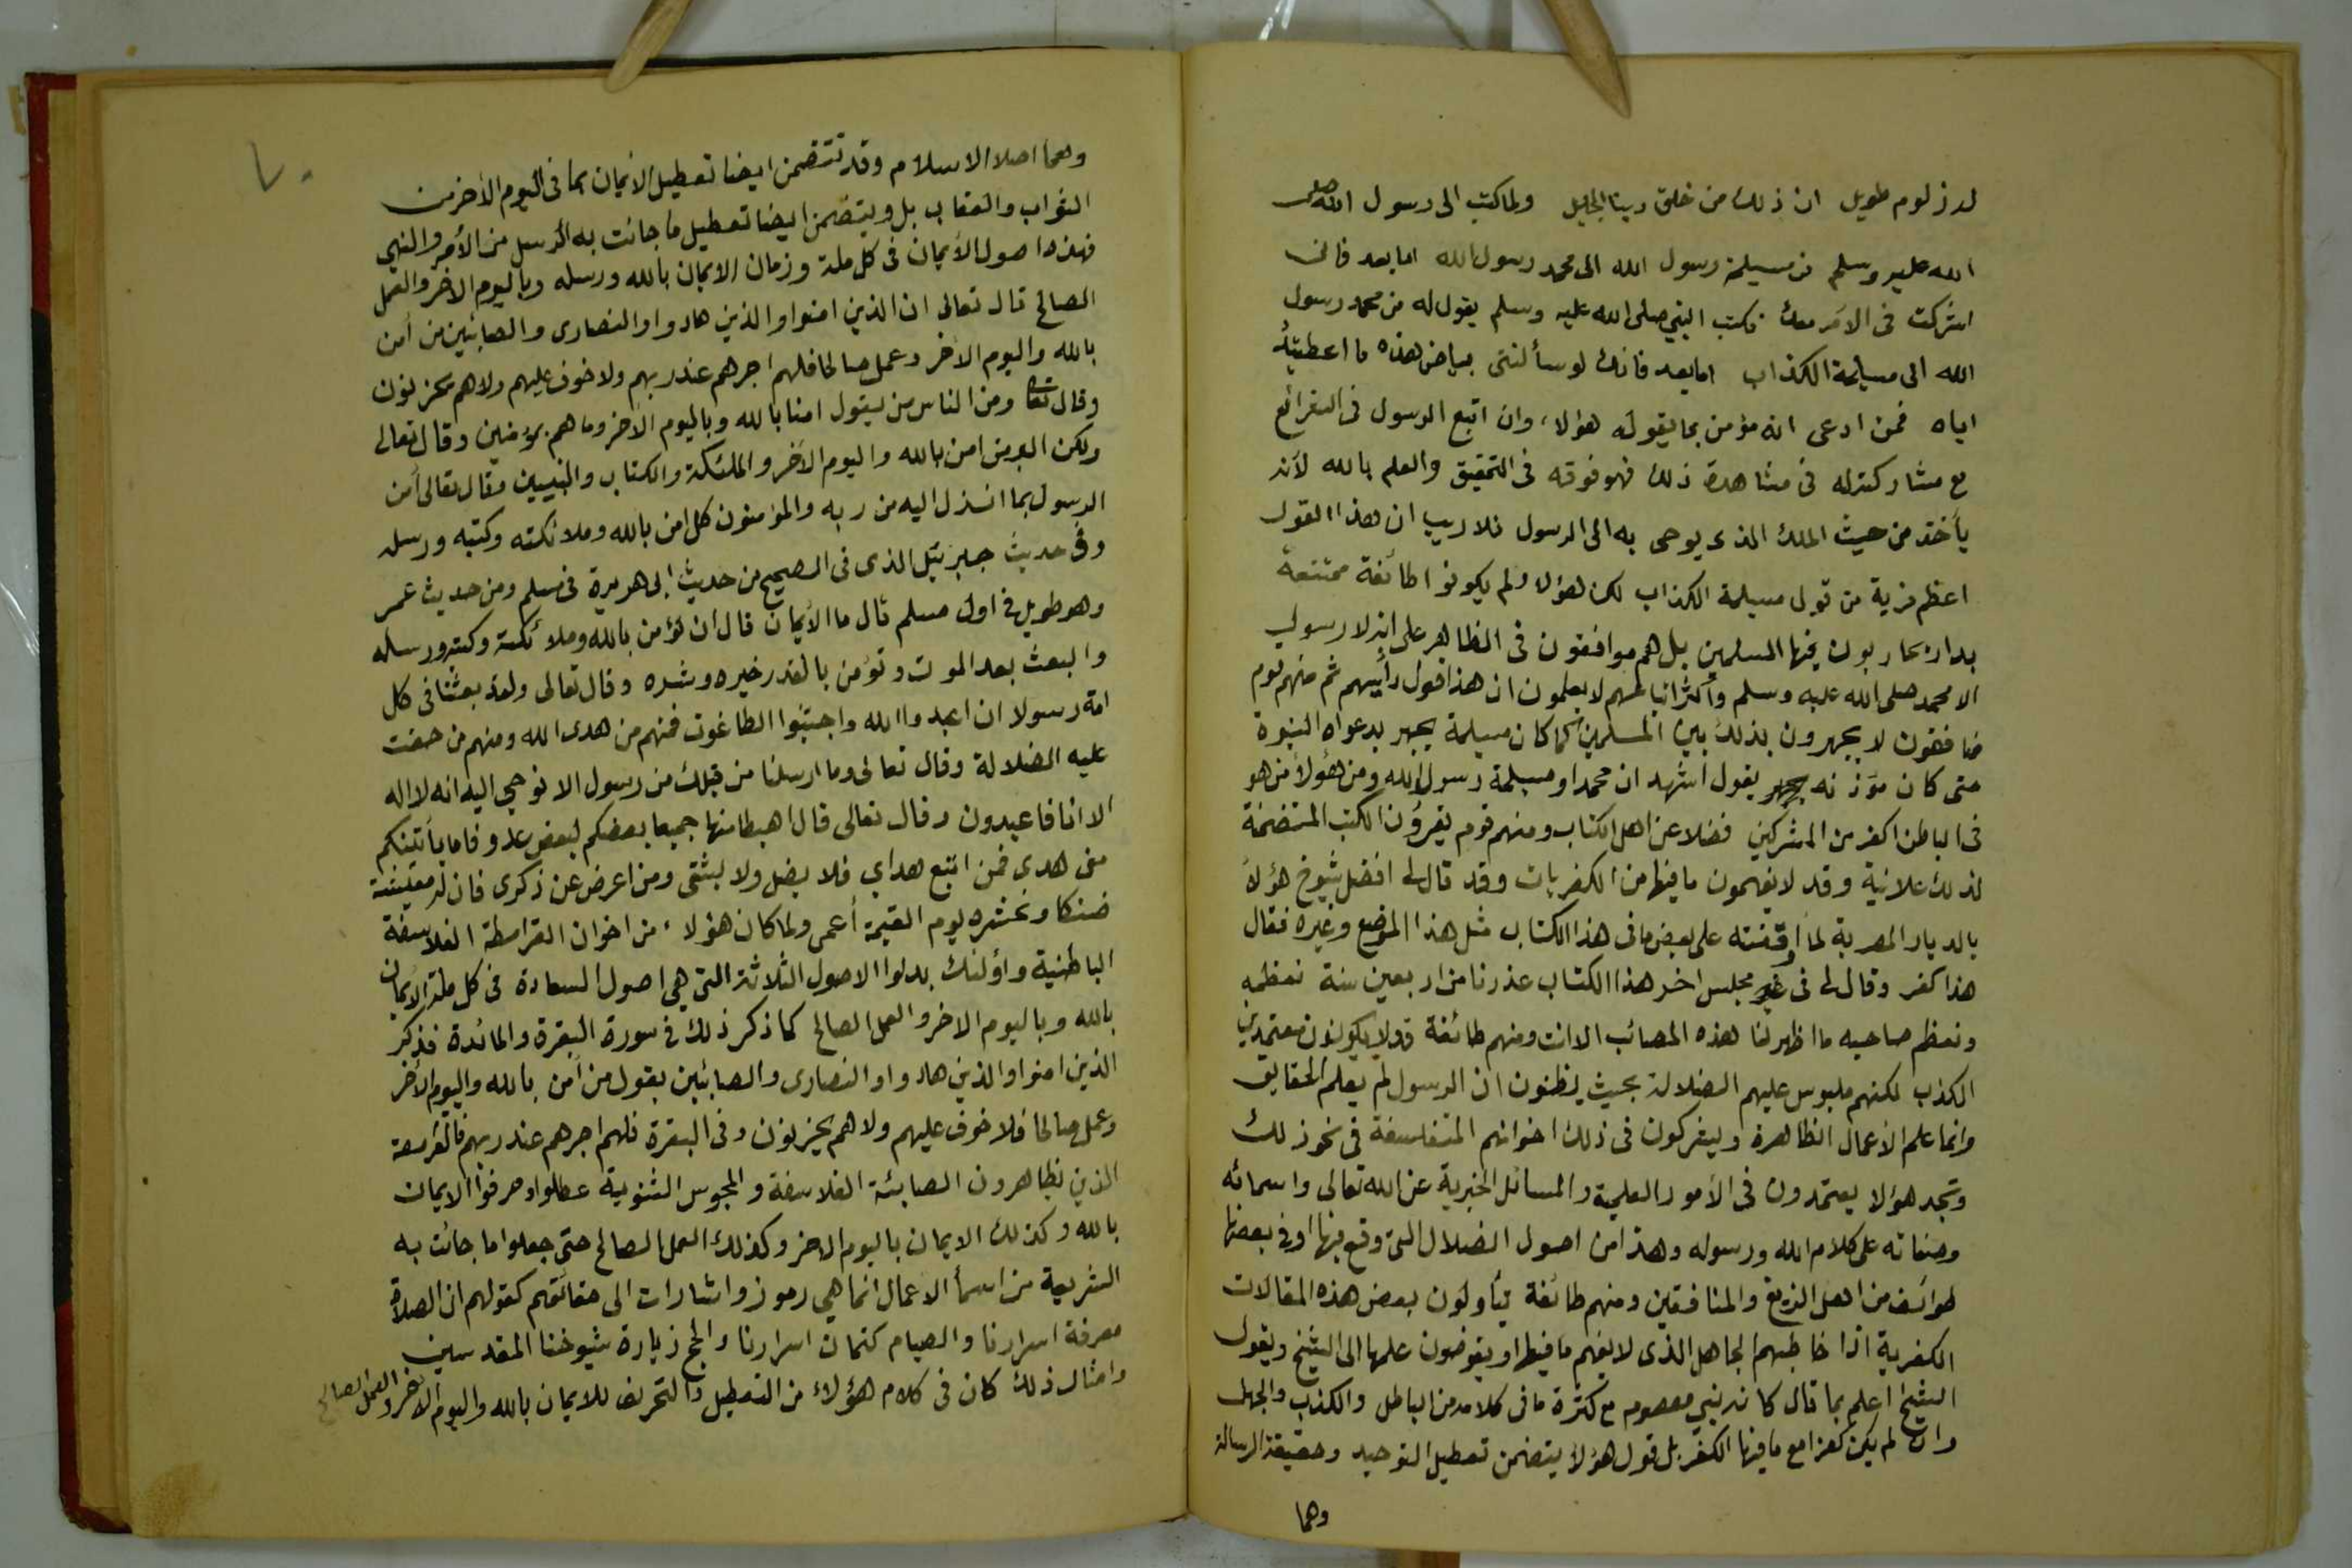 له زلوم طويل ان ذلك من خلق ربنا الجليل ولما كتب الى رسول الله صلى
الله عليه وسلم من مسيلمة رسول الله الى محمد رسول الله اما بعد فانى
اشركت فى الامر معك فكتب النبي صلى الله عليه وسلم يقول له من محمد رسول
الله الى مسيلمة الكذاب اما بعد فانك لو سألتنى بياض هذه ما اعطيتك
اياه فمن ادعى انه مؤمن بما يقوله هؤلاء وان اتبع الرسول فى الشرائع
مع مشاركته له فى مشاهدة ذلك فهو فوقه فى التحقيق والعلم بالله لأنه
يأخذ من حيث الملك الذى يوحى به الى الرسول فلا ريب ان هذا القول
اعظم فرية من قول مسيلمة الكذاب لكن هؤلاء لم يكونوا طائفة ممتنعة
بدار يحاربون فيها المسلمين بل هم موافقون فى الظاهر على انه لا رسول
الا محمد صلى الله عليه وسلم وأكثر اتباعهم لا يعلمون ان هذا قول رأيهم ثم منهم قوم
منافقون لا يجهرون بذلك بين المسلمين كما كان مسيلمة يجهر بدعواه النبوة
حتى كان مؤذنه يقول أشهد ان محمدا ومسيلمة رسول الله ومن هؤلاء من هو
فى الباطن اكفر من المشركين فضلا عن اهل الكتاب ومنهم قوم يقرؤن الكتب المتضمنة
لذلك علانية وقد لا يفهمون ما فيها من الكفريات وقد قال لى افضل شيوخ هؤلاء
بالديار المصرية لما أوقفته على بعض ما فى هذا الكتاب مثل هذا الموضع وغيره فقال
هذا كفر وقال لى فى مجلس اخر هذا الكتاب عندنا من اربعين سنة نعظمه
ونعظم صاحبه ما اظهر لنا هذه المصائب الا انت ومنهم طائفة قد لا يكونون متعمدين
الكذب لكنهم ملبوس عليهم الضلالة بحيث يظنون ان الرسول لم يعلم الحقايق
وانما علم الأعمال الظاهرة ويشركون فى ذلك اخوانهم المتفلسفة فى نحو ذلك
وتجد هؤلا يعتمدون فى الأمور العلمية والمسائل الخبرية عن الله تعالى واسمائه
وصفاته على كلام الله ورسوله وهذا من اصول الضلال التى وقع فيها او فى بعضها
طوائف من اهل الزيغ والمنافقين ومنهم طائفة يتأولون بعض هذه المقالات
الكفرية اذا خاطبهم الجاهل الذى لا يفهم ما فيها او يفوضون علمها الى الشيخ ويقول
الشيخ اعلم بما قال كانه نبي معصوم مع كثرة ما فى كلامه من الباطل والكذب والجهل
وان لم يكن كفرا مع ما فيها الكفر بل قول هؤلاء يتضمن تعطيل التوحيد وحقيقة الرسالة
وهما
٧٠
وهما اصلا الاسلام وقد تتضمن ايضا تعطيل الأيمان بما فى اليوم الأخر من
الثواب والعقاب بل ويتضمن ايضا تعطيل ما جائت به الرسل من الأمر والنهي
فهذه اصول الأيمان فى كل ملة وزمان الايمان بالله ورسله وباليوم الاخر والعمل
الصالح قال تعالى ان الذين امنوا والذين هادوا والنصارى والصابئين من أمن
بالله واليوم الأخر وعمل صالحا فلهم اجرهم عند ربهم ولا خوف عليهم ولا هم يحزنون
وقال تعا ومن الناس من يقول امنا بالله وباليوم الأخر وما هم بمؤمنين وقال تعالى
ولكن البر من امن بالله واليوم الأخر والملئكة والكتاب والنبيين وقال تعالى أمن
الرسول بما انزل اليه من ربه والمؤمنون كل امن بالله وملائكته وكتبه ورسله
وفى حديث جبرئيل الذى فى الصحيح من حديث ابى هريرة فى مسلم ومن حديث عمر
وهو طويل فى اول مسلم قال ما الأيمان قال ان تؤمن بالله وملائكته وكتبه ورسله
والبعث بعد الموت وتؤمن بالقدر خيره وشره وقال تعالى ولقد بعثنا فى كل
امة رسولا ان اعبدوا الله واجتنبوا الطاغوت فمنهم من هدى الله ومنهم من حقت
عليه الضلالة وقال تعالى وما ارسلنا من قبلك من رسول الا نوحي اليه انه لا اله
الا انا فاعبدون وقال تعالى قال اهبطا منها جميعا بعضكم لبعض عدو فاما يأتينكم
منى هدى فمن اتبع هداي فلا يضل ولا يشقى ومن اعرض عن ذكرى فان له معيشة
ضنكا ونحشره يوم القيمة أعمى ولما كان هؤلاء من اخوان القرامطة الفلاسفة
الباطنية واولئك بدلوا الاصول الثلاثة التى هى اصول السعادة فى كل ملة الأيمان
بالله وباليوم الاخر والعمل الصالح كما ذكر ذلك فى سورة البقرة والمائدة فذكر
الذين امنوا والذين هادوا والنصارى والصابئين بقول من أمن بالله واليوم الأخر
وعمل صالحا فلا خوف عليهم ولا هم يحزنون وفى البقرة فلهم اجرهم عند ربهم فالقرامطة
الذين تظاهرون الصابئة الفلاسفة والمجوس الثنوية عطلوا وحرفوا الايمان
بالله وكذلك الايمان باليوم الاخر وكذلك العمل الصالح حتى جعلوا ما جائت به
الشريعة من اسماء الاعمال انما هى رموز واشارات الى حقائقهم كقولهم ان الصلاة
معرفة اسرارنا والصيام كتمان اسرارنا والحج زيارة شيوخنا المقدسين
وامثال ذلك كان فى كلام هؤلاء من التعطيل والتحريف للايمان بالله واليوم الاخر والعمل الصالح